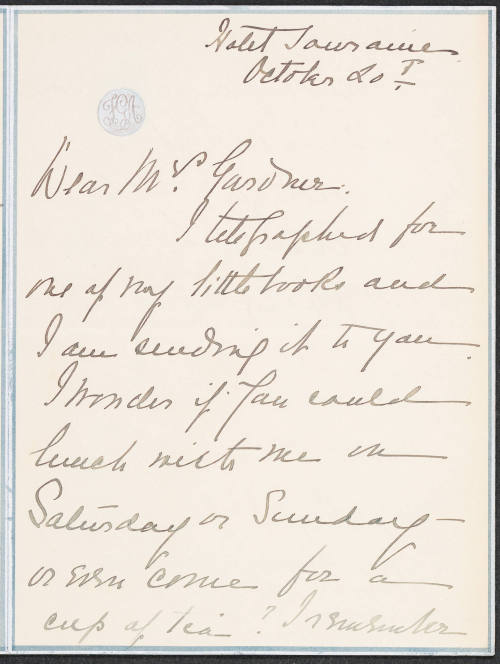 Hotel Touraine
October 20th
Dear Mrs. Gardner.
I telegraphed for
one of my little books and
I am sending it to you.
I wonder if you could
lunch with me on
Saturday or Sunday -
or even come for a
cup of tea? I remember